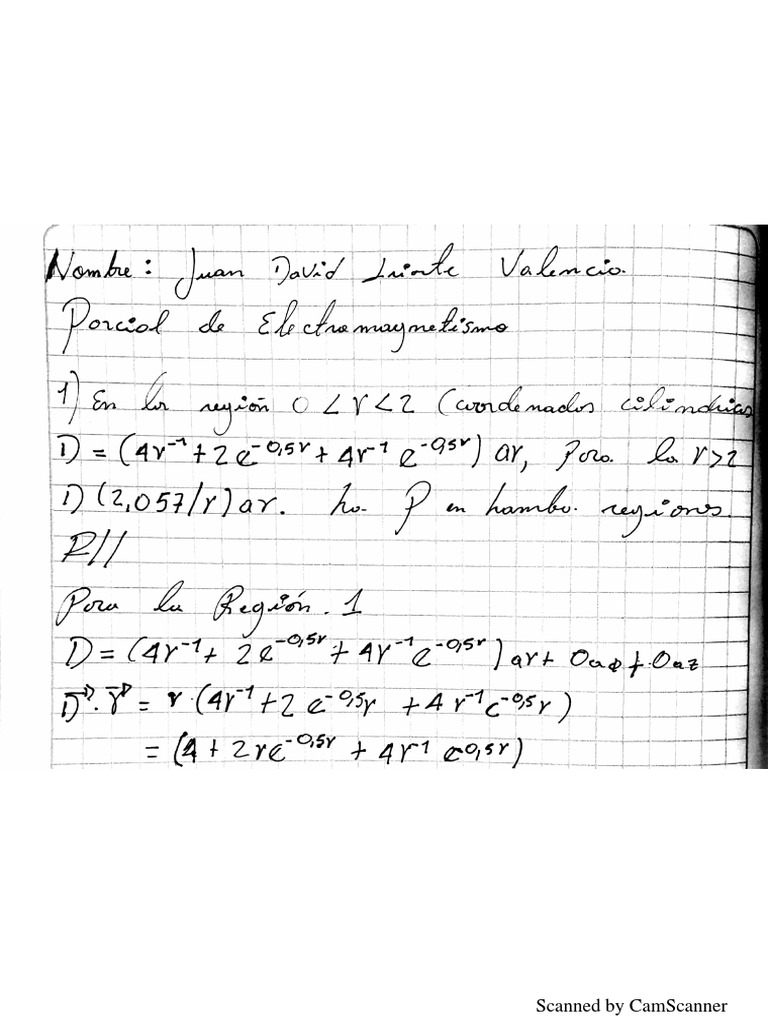 Nombre: Juan David Iriarte Valencia.
Parcial de Electromagnetismo
1) En la región 0 < r < 2 (coordenadas cilindricas
D = (4r⁻¹ + 2e⁻⁰,⁵ʳ + 4r⁻¹ e⁻⁰,⁵ʳ) ar, Para la r>2
D (2,057/r) ar. ha. P en hambo. regiones.
R//
Para la Región. 1
D = (4r⁻¹ + 2e⁻⁰,⁵ʳ + 4r⁻¹ e⁻⁰,⁵ʳ) ar + 0aφ + 0az
D⃗ · r⃗ = r · (4r⁻¹ + 2 e⁻⁰,⁵r + 4 r⁻¹ e⁻⁰,⁵r)
= (4 + 2re⁻⁰,⁵ʳ + 4r1 e⁰,⁵ʳ)
Scanned by CamScanner